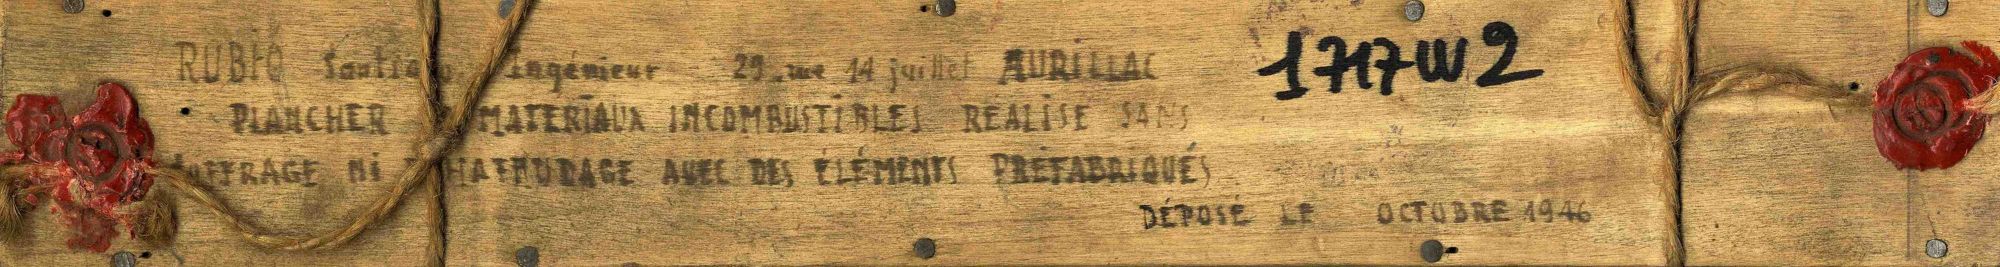 RUBIO Santiago Ingénieur 29 rue 14 juillet AURILLAC
1717W2
PLANCHER MATERIAUX INCOMBUSTIBLES REALISE SANS
COFFRAGE NI ECHAFAUDAGE AVEC DES ÉLÉMENTS PRÉFABRIQUÉS
DÉPOSÉ LE OCTOBRE 1946